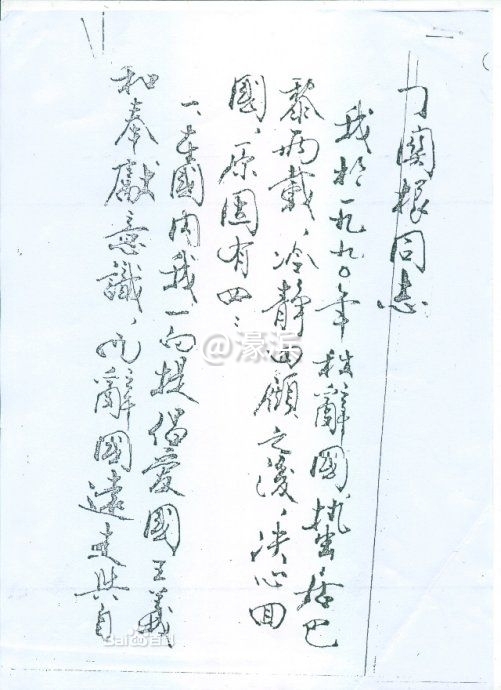 丁関根同志
我於一九九〇年秋辭國,蟄居巴
黎兩載,冷靜回顧之後,决心回
國,原因有四:
一、在國内我一向提倡愛國主義
和奉獻意識,而辭國遠走與自
@濠浜
Bai百科